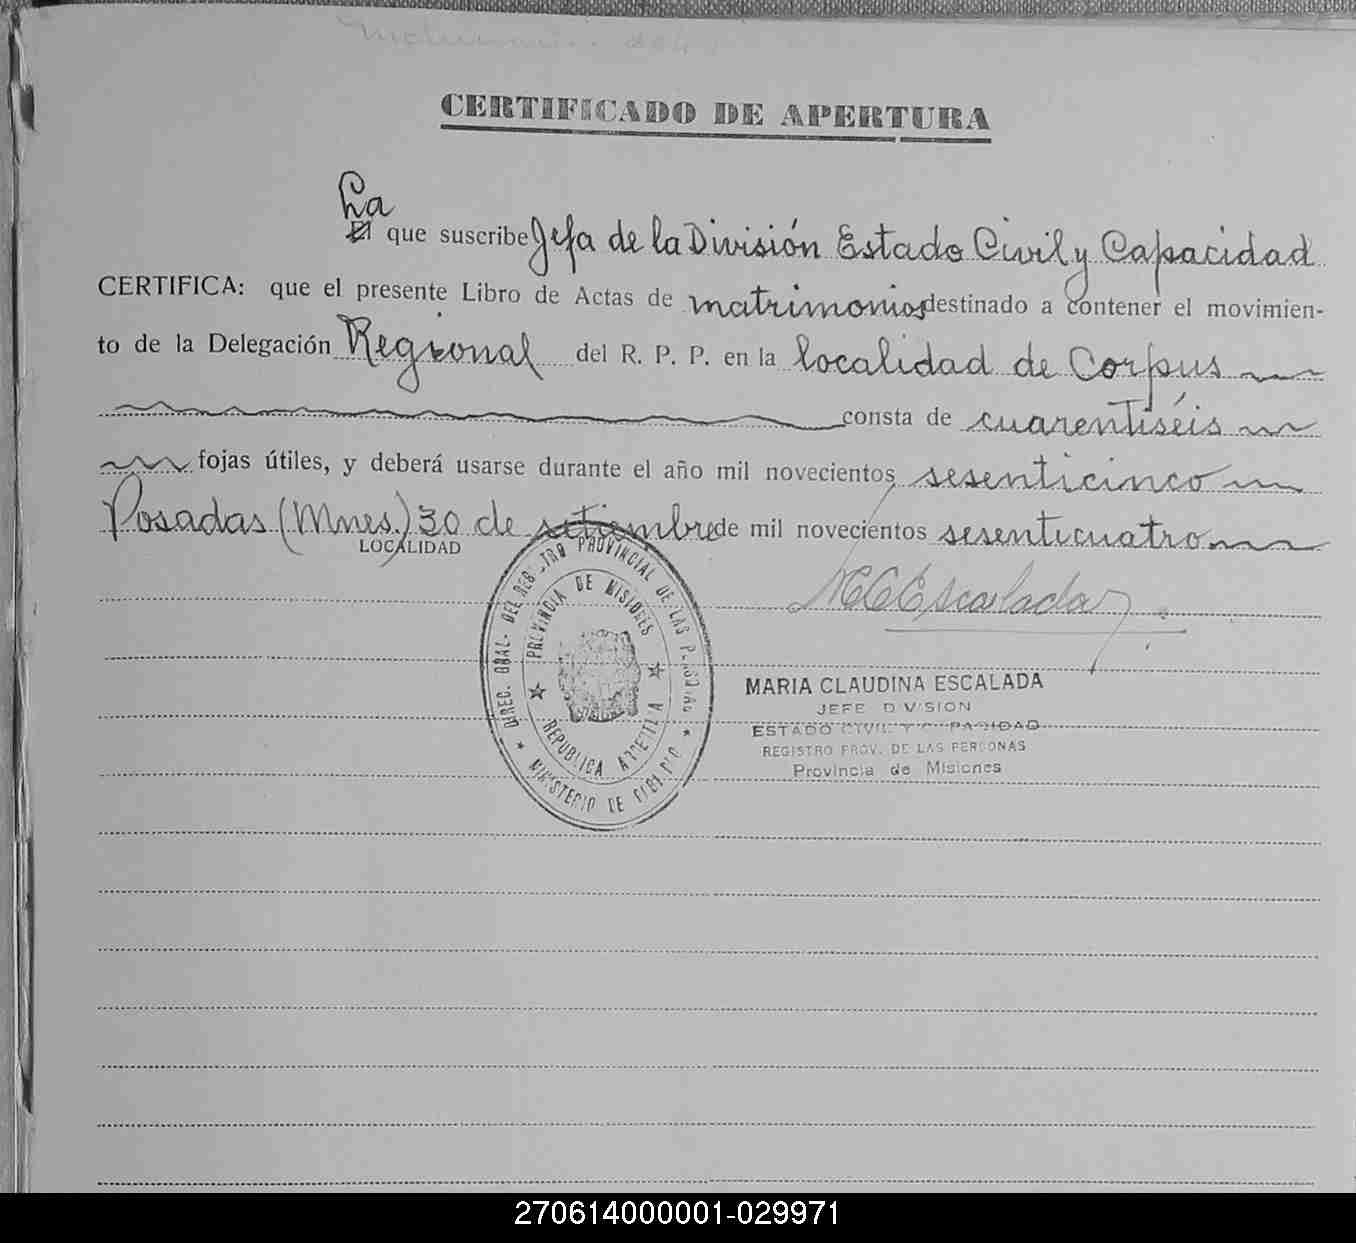 CERTIFICADO DE APERTURA
La
El que suscribe Jefa de la División Estado Civil y Capacidad
CERTIFICA: que el presente Libro de Actas de matrimonios destinado a contener el movimien-
to de la Delegación Regional del R. P. P. en la localidad de Corpus
consta de cuarentiséis
fojas útiles, y deberá usarse durante el año mil novecientos sesenticinco
Posadas (Mnes.) 30 de setiembre de mil novecientos sesenticuatro
LOCALIDAD
Escalada
DIREC. GRAL. DEL REGISTRO PROVINCIAL DE LAS PERSONAS
PROVINCIA DE MISIONES
REPUBLICA ARGENTINA
MINISTERIO DE GOBIERNO
MARIA CLAUDINA ESCALADA
JEFE DIVISION
ESTADO CIVIL Y CAPACIDAD
REGISTRO PROV. DE LAS PERSONAS
Provincia de Misiones
270614000001-029971